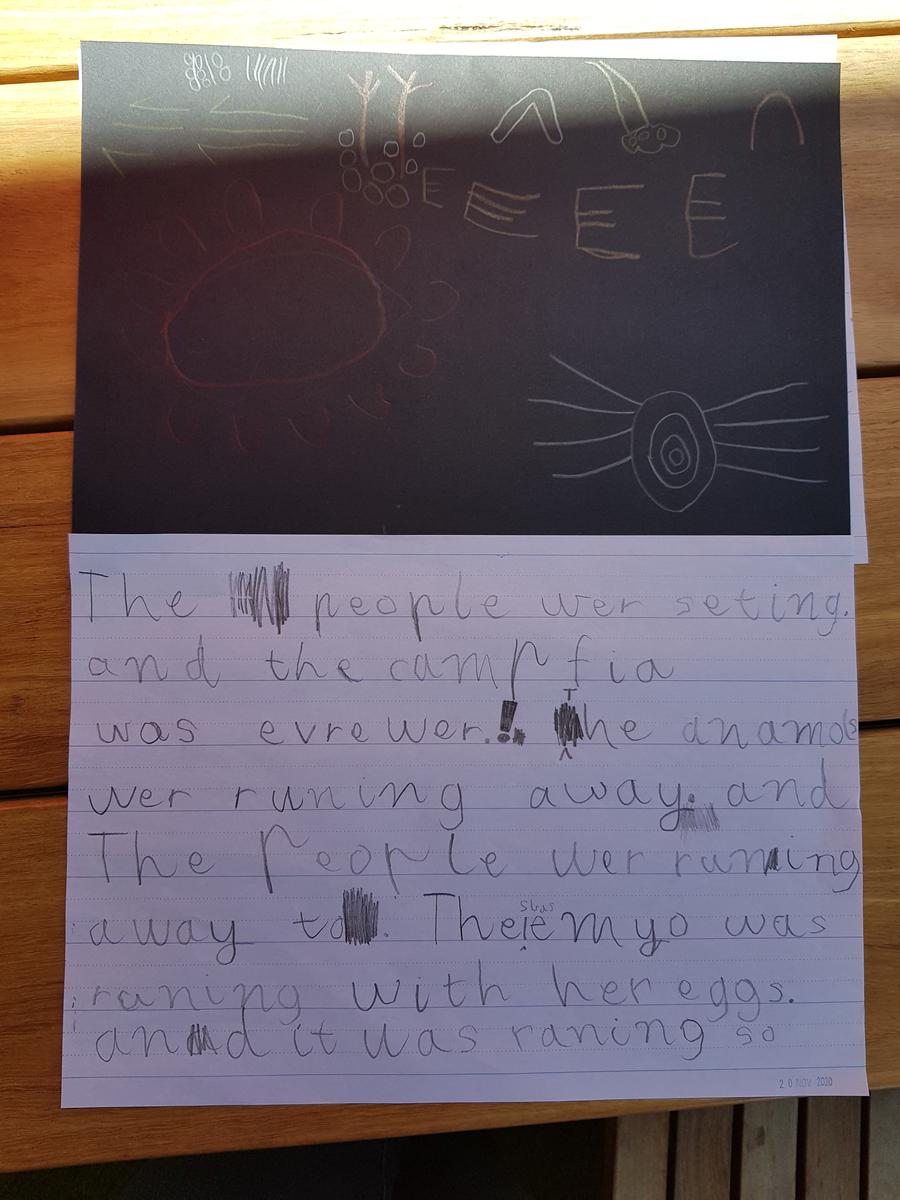 E E E E
The people wer seting.
and the camp fia
was evrewer.! The anamols
wer runing away. and
The People wer runing
away to. The emyo was
raning with her eggs.
and it was raning so
20 NOV 2020